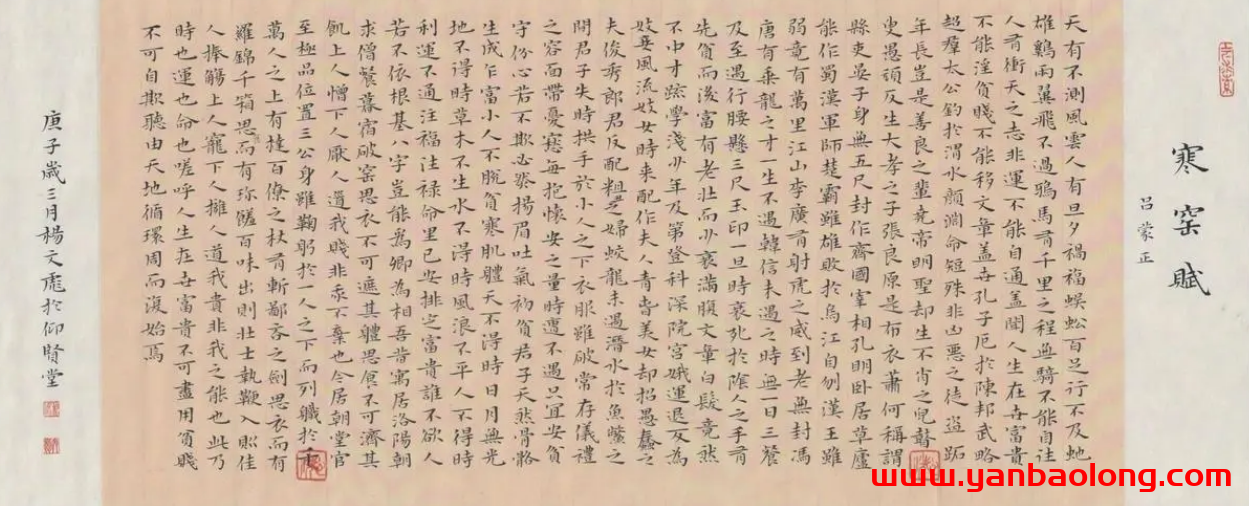 寒窑賦
呂蒙正
天有不測風雲人有旦夕禍福蜈蚣百足行不及蛇
雄鷄兩翼飛不過鴉馬有千里之程無騎不能自往
人有衝天之志非運不能自通盖聞人生在世富貴
不能淫貧賤不能移文章盖世孔子厄於陳邦武略
超羣太公釣於渭水顏淵命短殊非凶惡之徒盜跖
年長豈是善良之輩堯帝明聖却生不肖之兒瞽
叟愚頑反生大孝之子張良原是布衣蕭何稱謂
縣吏晏子身無五尺封作齊國宰相孔明卧居草廬
能作蜀漢軍師楚霸雖雄敗於烏江自刎漢王雖
弱竟有萬里江山李廣有射虎之威到老無封馮
唐有乘龍之才一生不遇韓信未遇之時無一日三餐
及至遇行腰懸三尺玉印一旦時衰死於陰人之手有
先貧而後富有老壯而少衰滿腹文章白髮竟然
不中才疏學淺少年及第登科深院宮娥運退反為
妓妾風流妓女時來配作夫人青春美女却招愚蠢之
夫俊秀郎君反配粗之婦蛟龍未遇潛水於魚鱉之
間君子失時拱手於小人之下衣服雖破常存儀禮
之容面帶憂愁每抱懷安之量時遭不遇只宜安貧
守份心若不欺必然揚眉吐氣初貧君子天然骨骼
生成乍富小人不脫貧寒肌體天不得時日月無光
地不得時草木不生水不得時風浪不平人不得時
利運不通注福注禄命里已安排定富貴誰不欲人
若不依根基八字豈能為卿為相吾昔寓居洛陽朝
求僧餐暮宿破窑思衣不可遮其體思食不可濟其
飢上人憎下人厭人道我賤非我不棄也今居朝堂官
至極品位置三公身雖鞠躬於一人之下而列職於千
萬人之上有撻百僚之杖有斬鄙吝之劍思衣而有
羅錦千箱思而有珍饈百味出則壯士執鞭入則佳
人捧觴上人寵下人擁人道我貴非我之能也此乃
時也運也命也嗟呼人生在世富貴不可盡用貧賤
不可自欺聽由天地循環周而復始焉
庚子歲三月楊文虎於仰賢堂
www.yanbaolong.com